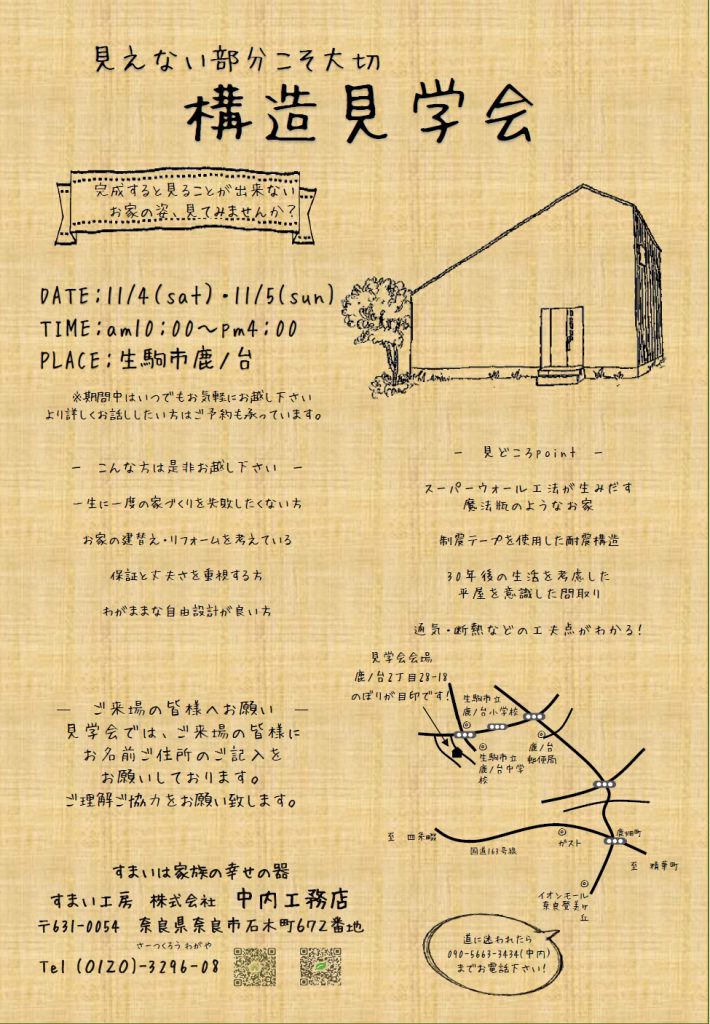 見えない部分こそ大切
構造見学会
完成すると見ることが出来ない
お家の姿、見てみませんか?
DATE:11/4(sat)・11/5(sun)
TIME:am10:00〜pm4:00
PLACE:生駒市鹿ノ台
※期間中はいつでもお気軽にお越し下さい
より詳しくお話ししたい方はご予約も承っています。
― こんな方は是非お越し下さい ―
一生に一度の家づくりを失敗したくない方
お家の建替え・リフォームを考えている
保証と丈夫さを重視する方
わがままな自由設計が良い方
― 見どころpoint ―
スーパーウォール工法が生みだす
魔法瓶のようなお家
制震テープを使用した耐震構造
30年後の生活を考慮した
平屋を意識した間取り
通気・断熱などの工夫点がわかる!
見学会会場
鹿ノ台2丁目28-18
のぼりが目印です!
生駒市立
鹿ノ台小学校
生駒市立
鹿ノ台中学
校
鹿ノ台
郵便局
至 四条畷
国道163号線
ガスト
鹿畑町
至 精華町
イオンモール
奈良登美ヶ
丘
― ご来場の皆様へお願い ―
見学会では、ご来場の皆様に
お名前ご住所のご記入を
お願いしております。
ご理解ご協力をお願い致します。
すまいは家族の幸せの器
すまい工房 株式会社 中内工務店
〒631-0054 奈良県奈良市石木町672番地
さーつくろう わがや
Tel (0120)-3296-08
道に迷われたら
090-5663-3434(中内)
までお電話下さい!